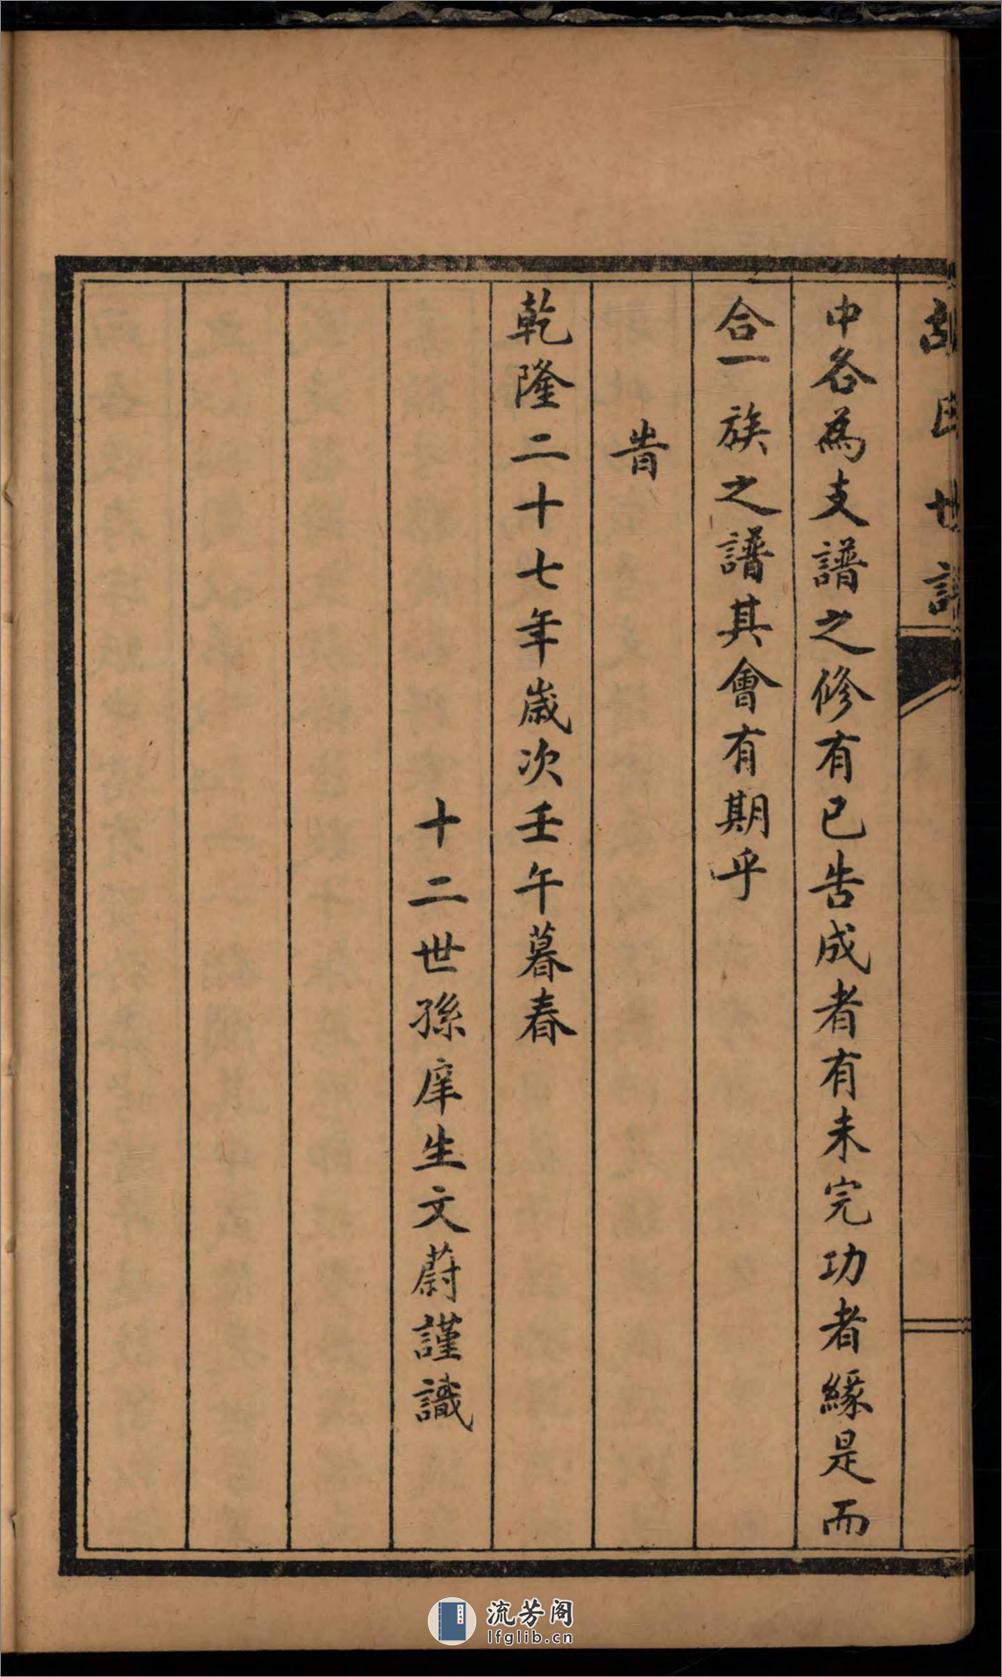 氏世譜
中各為支譜之修有已告成者有未完功者緣是而
合一族之譜其會有期乎
旹
乾隆二十七年歲次壬午暮春
十二世孫庠生文蔚謹識
流芳阁
lfglib.cn